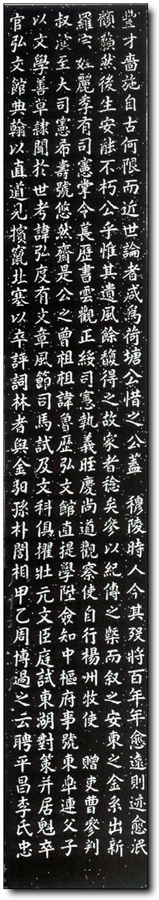 豊才嗇施自古何限而近世論者咸爲荷塘公惜之公蓋 穆陵時人今其歿將百年年愈遠則迹愈泯
顧然後生安能不朽公乎惟其遺風餘馥得之故家者稔矣參以紀傳之槩而敍之安東之金系出新
羅姓麗季有司憲掌令長歷書雲觀正綏司憲執義旺慶尙道觀察使自行楊州牧使 贈吏曹參判
叔演至大司憲希壽號悠然齋是公之曾祖祖諱魯歷弘文館直提學陞僉知中樞府事號東皐連父子
以文學善草隷聞於世考諱弘度有文章風節司馬試及文科俱擢壯元文臣庭試東湖對策幷居魁卒
官弘文館典翰以直道擯竄北塞以卒評詞林者與金馹孫朴誾相甲乙周博過之云聘平昌李氏忠